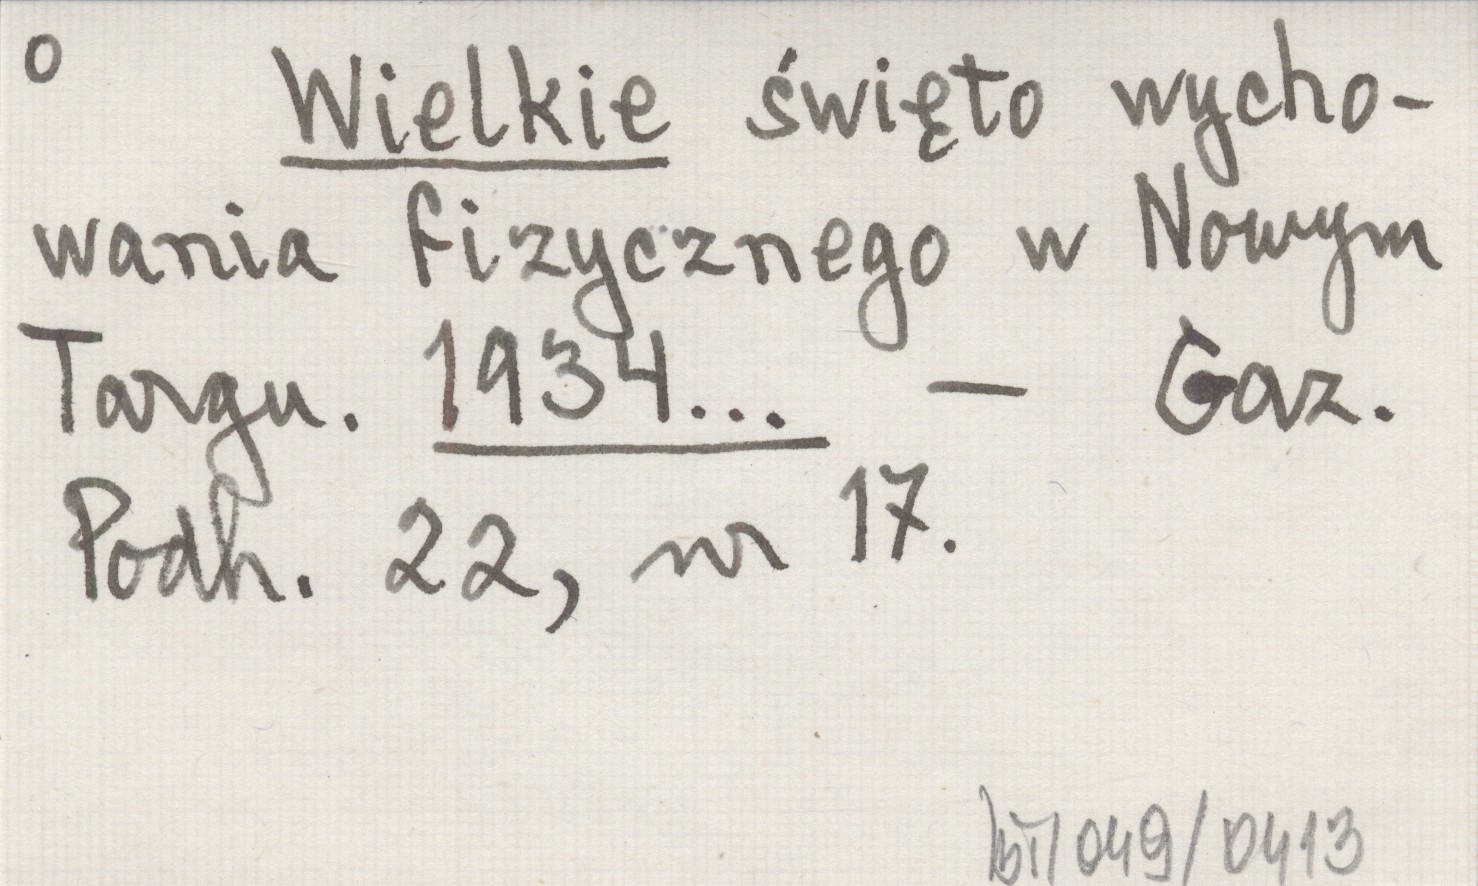 o Wielkie święto wycho-
wania fizycznego w Nowym
Targu. 1934... — Gaz.
Podh. 22, nr 17.
049/0413